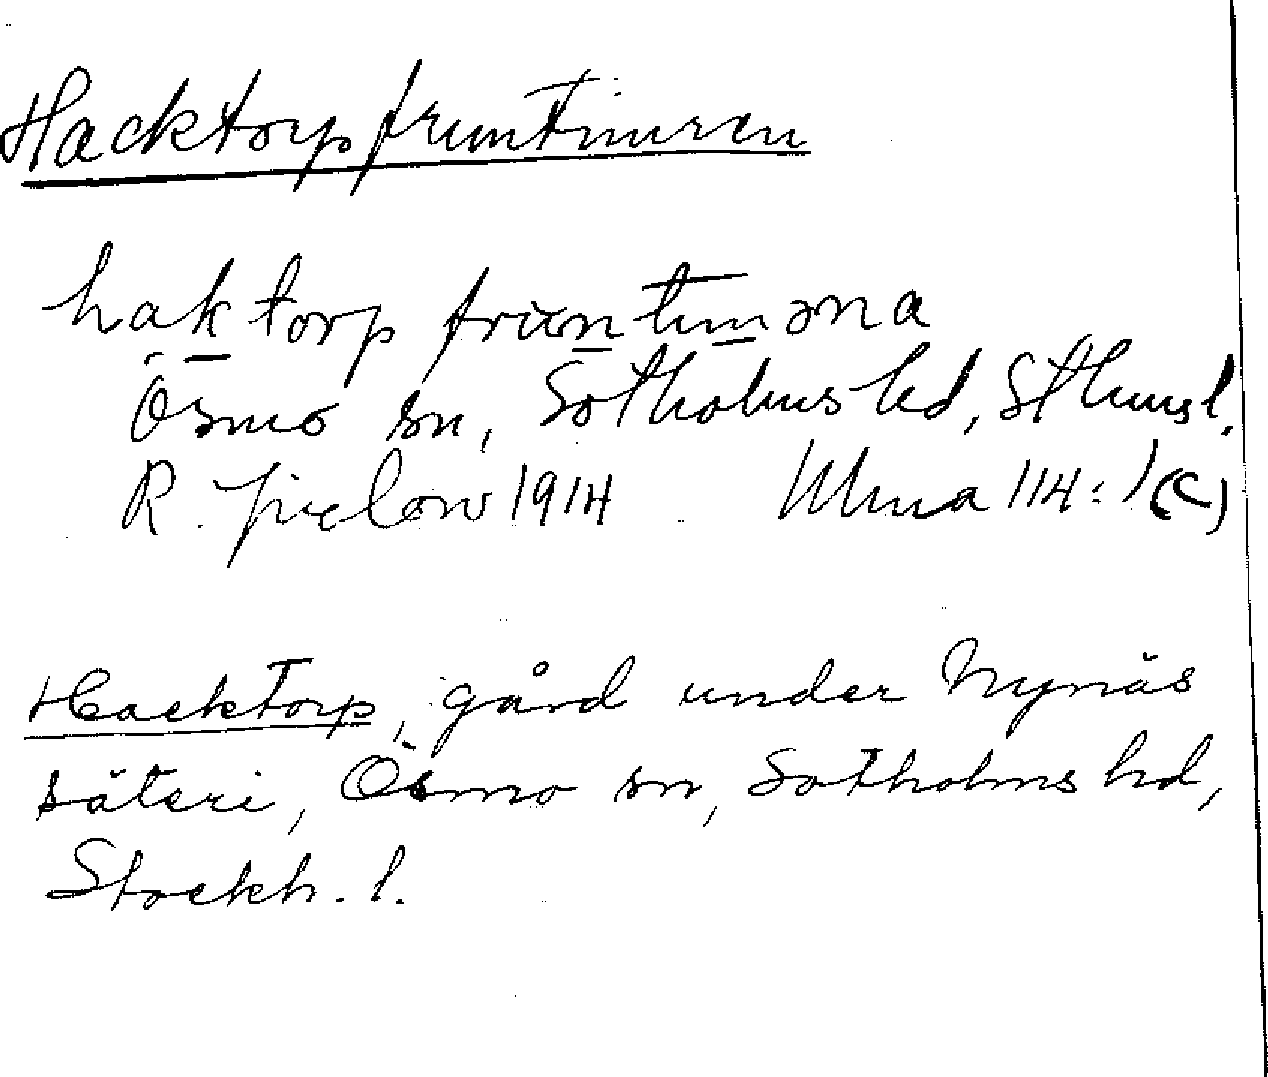 Hacktorpfruntimren
haktorp fruntiməna
Ösmo sn, Sotholms hd, Sthmsl.
R. Pielow 1914 Ulma 114:1(C)
Hacktorp, gård under Nynäs
säteri, Ösmo sn, Sotholms hd,
Stockh. l.